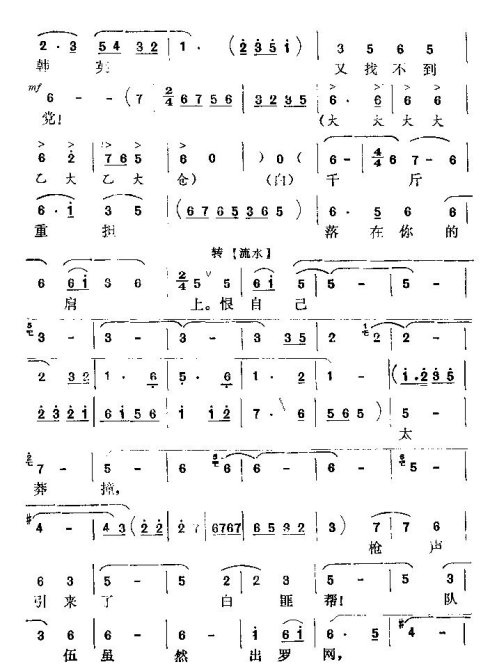 2·3 54 32 1· (2351) 3 5 6 5
韩 英 又 找 不 到
mf 6 - - (7 2/4 6756 3235 6· 6 6 6
党! (大 大 大 大
6 2 765 6 0 )0( 6- 4/4 6 7-6
乙 大 乙 大 仓) (白) 千 斤
6·1 3 5 (6765365) 6· 5 6 6
重 担 落 在 你 的
转【流水】
6 61 3 6 2/4 5 5 61 5 5 - 5 -
肩 上。恨 自 己
3 - 3 - 3 - 3 35 2 2 -
2 32 1· 6 5· 6 1· 2 1 - (1·235
2321 6156 1 12 7· 6 565)
太
7 - 5 - 6 6 6 - 5 -
莽 撞,
#4 - 4 43 (22 27 6767 6532 3) 7 7 6
枪 声
6 3 5 - 5 2 2 3 5 - 5
引 来 了 白 匪 帮! 队
3 6 6 - 6 - 1 61 #4 -
伍 虽 然 出 罗 网,